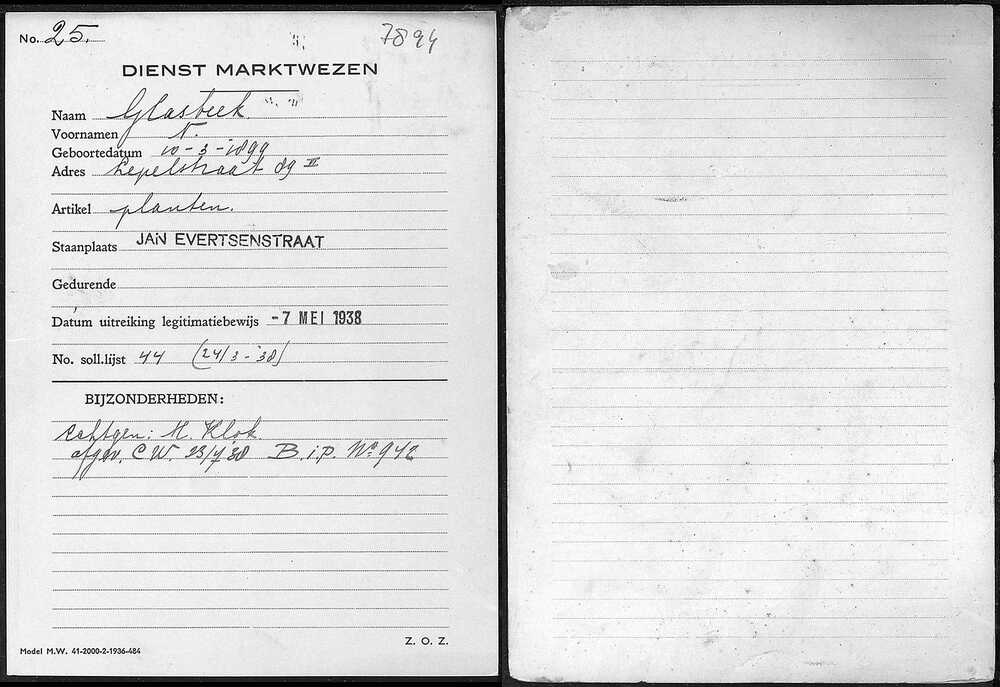 No. 25.
7894
DIENST MARKTWEZEN
Naam Glasbeek
Voornamen N.
Geboortedatum 10-3-1899
Adres Lepelstraat 89 III
Artikel planten.
Staanplaats JAN EVERTSENSTRAAT
Gedurende
Datum uitreiking legitimatiebewijs -7 MEI 1938
No. soll.lijst 44 (24/3-'38)
BIJZONDERHEDEN:
echtgen: M. Klok
afgev. C.W. 23/7 38 B.i.p. No 942
Z. O. Z.
Model M.W. 41-2000-2-1936-484